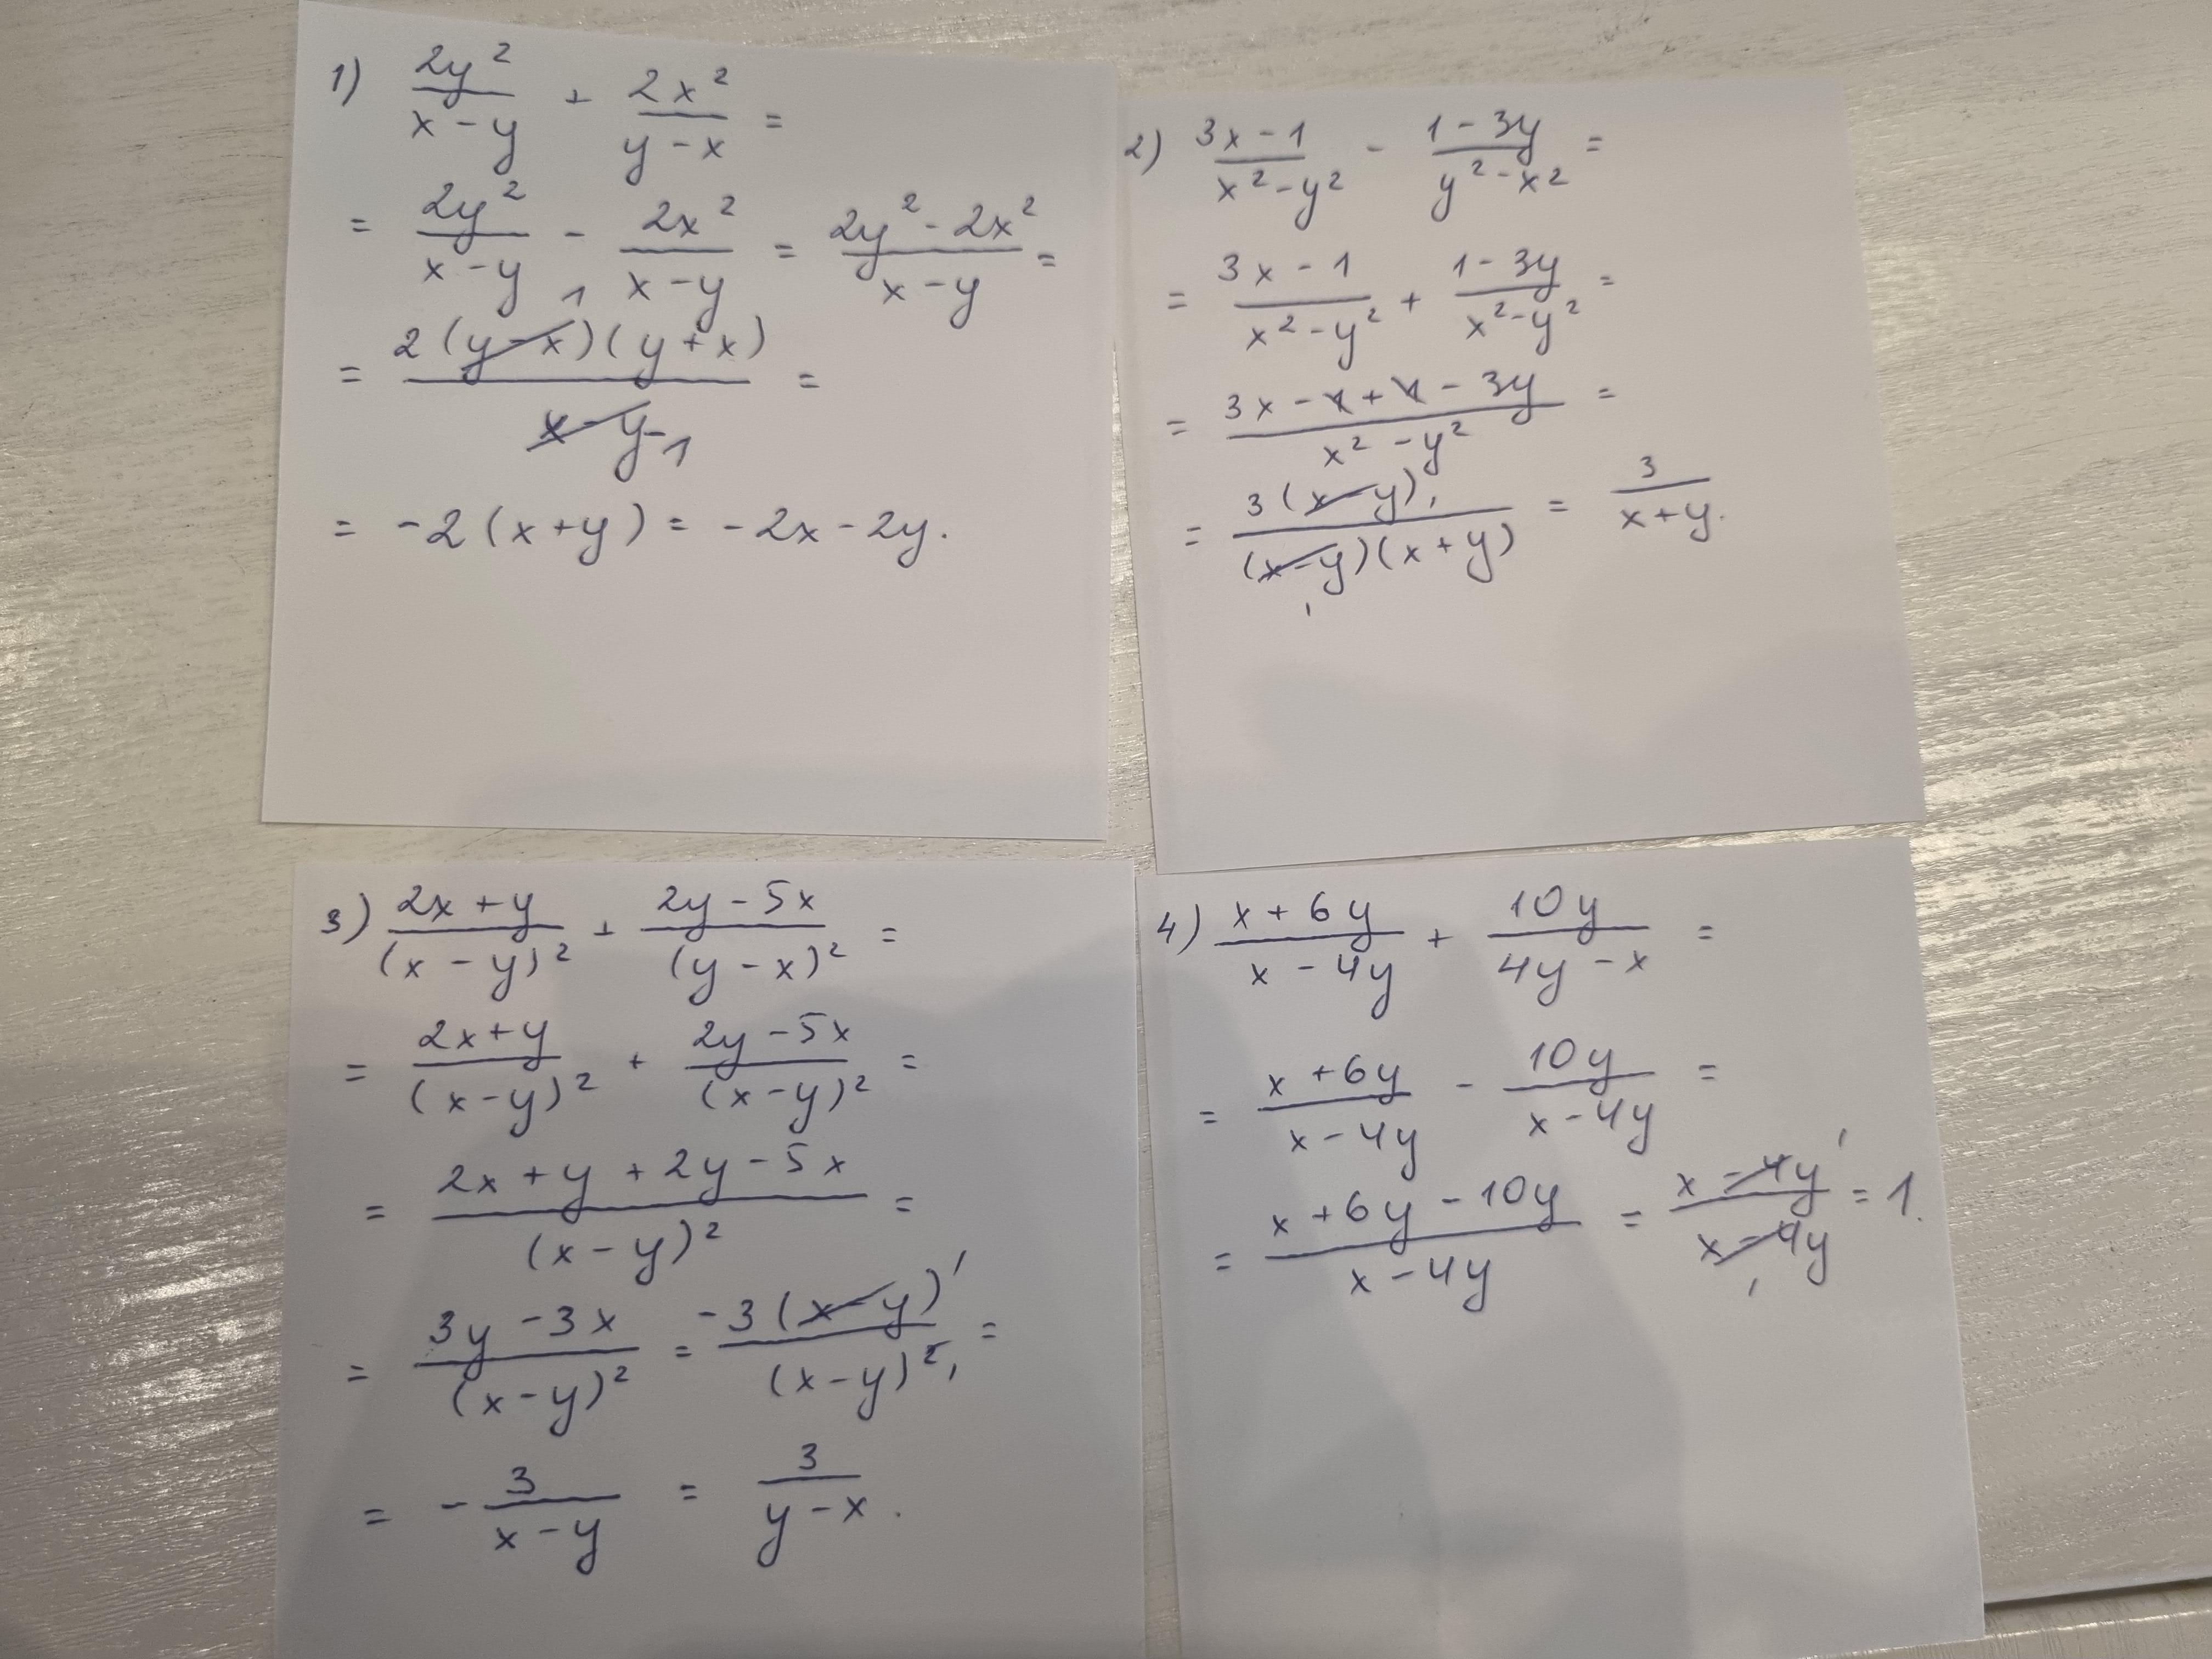 1) 2y²/(x-y) + 2x²/(y-x) =
= 2y²/(x-y) - 2x²/(x-y) = (2y²-2x²)/(x-y) =
= 2(y-x)¹(y+x)/(x-y)₋₁ =
= -2(x+y) = -2x-2y.
2) (3x-1)/(x²-y²) - (1-3y)/(y²-x²) =
= (3x-1)/(x²-y²) + (1-3y)/(x²-y²) =
= (3x-1+1-3y)/(x²-y²) =
= 3(x-y)₁/((x-y)₁(x+y)) = 3/(x+y).
3) (2x+y)/(x-y)² + (2y-5x)/(y-x)² =
= (2x+y)/(x-y)² + (2y-5x)/(x-y)² =
= (2x+y+2y-5x)/(x-y)² =
= (3y-3x)/(x-y)² = -3(x-y)¹/(x-y)²₁ =
= -3/(x-y) = 3/(y-x).
4) (x+6y)/(x-4y) + 10y/(4y-x) =
= (x+6y)/(x-4y) - 10y/(x-4y) =
= (x+6y-10y)/(x-4y) = (x-4y)¹/(x-4y)₁ = 1.